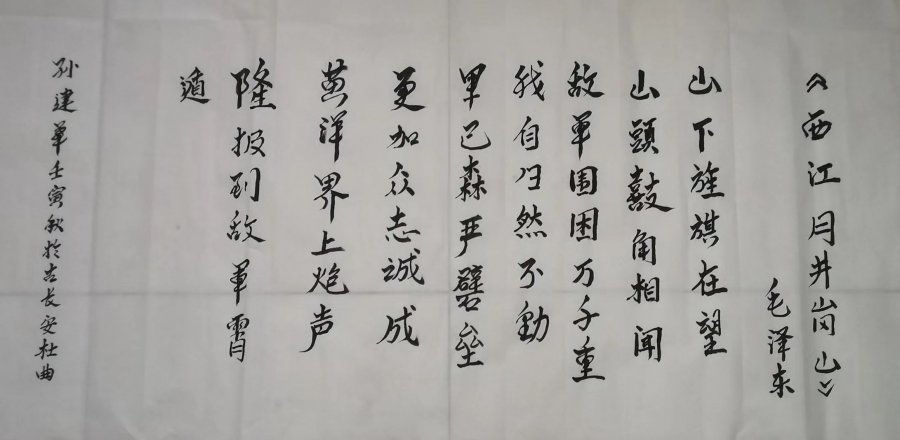 《西江月井岗山》
毛泽东
山下旌旗在望
山頭鼓角相闻
敌军围困万千重
我自归然不動
早已森严壁垒
更加众志诚成
黄洋界上炮声
隆报到敌军霄
遁
孙建军壬寅秋於古长安杜曲